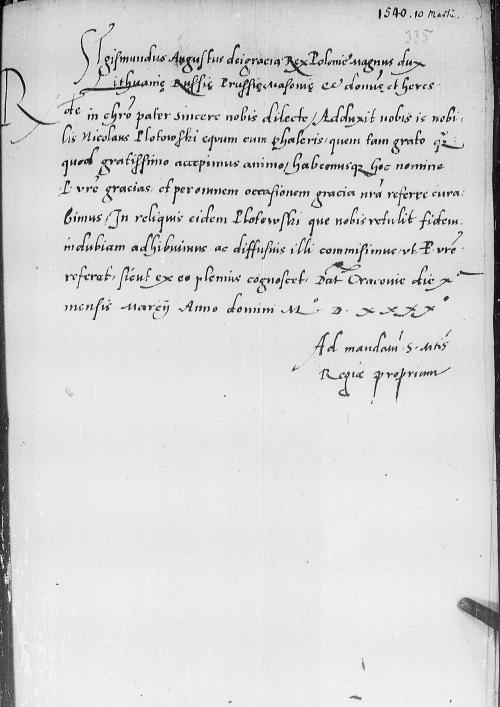 1540. 10 Martii.
335
Sigismundus Augustus dei gracia Rex Polonie Magnus dux
Lithuanię Russię Prussię, Masovię ec domin9 et heres
Rde in chro pater sincere nobis dilecte, Adduxit nobis is nobi-
lis Nicolaus Plotowski equum cum phaleris, quem tam grato
quod gratissimo accepimus animo, habemusque hoc nomine
P. vrę gracias, et per omnem occasionem gracia nra referre cura
bimus, In reliquis eidem Plotowski que nobis retulit fidem
indubiam adhibuimus ac diffusius illi commisimus, ut P. vrę
referat, sicut ex eo plenius cognoscet. Dat Cracovie die xa
mensis Marcij Anno domini Mo. D. xxxxo
Ad mandatū S. Mtis
Regię proprium